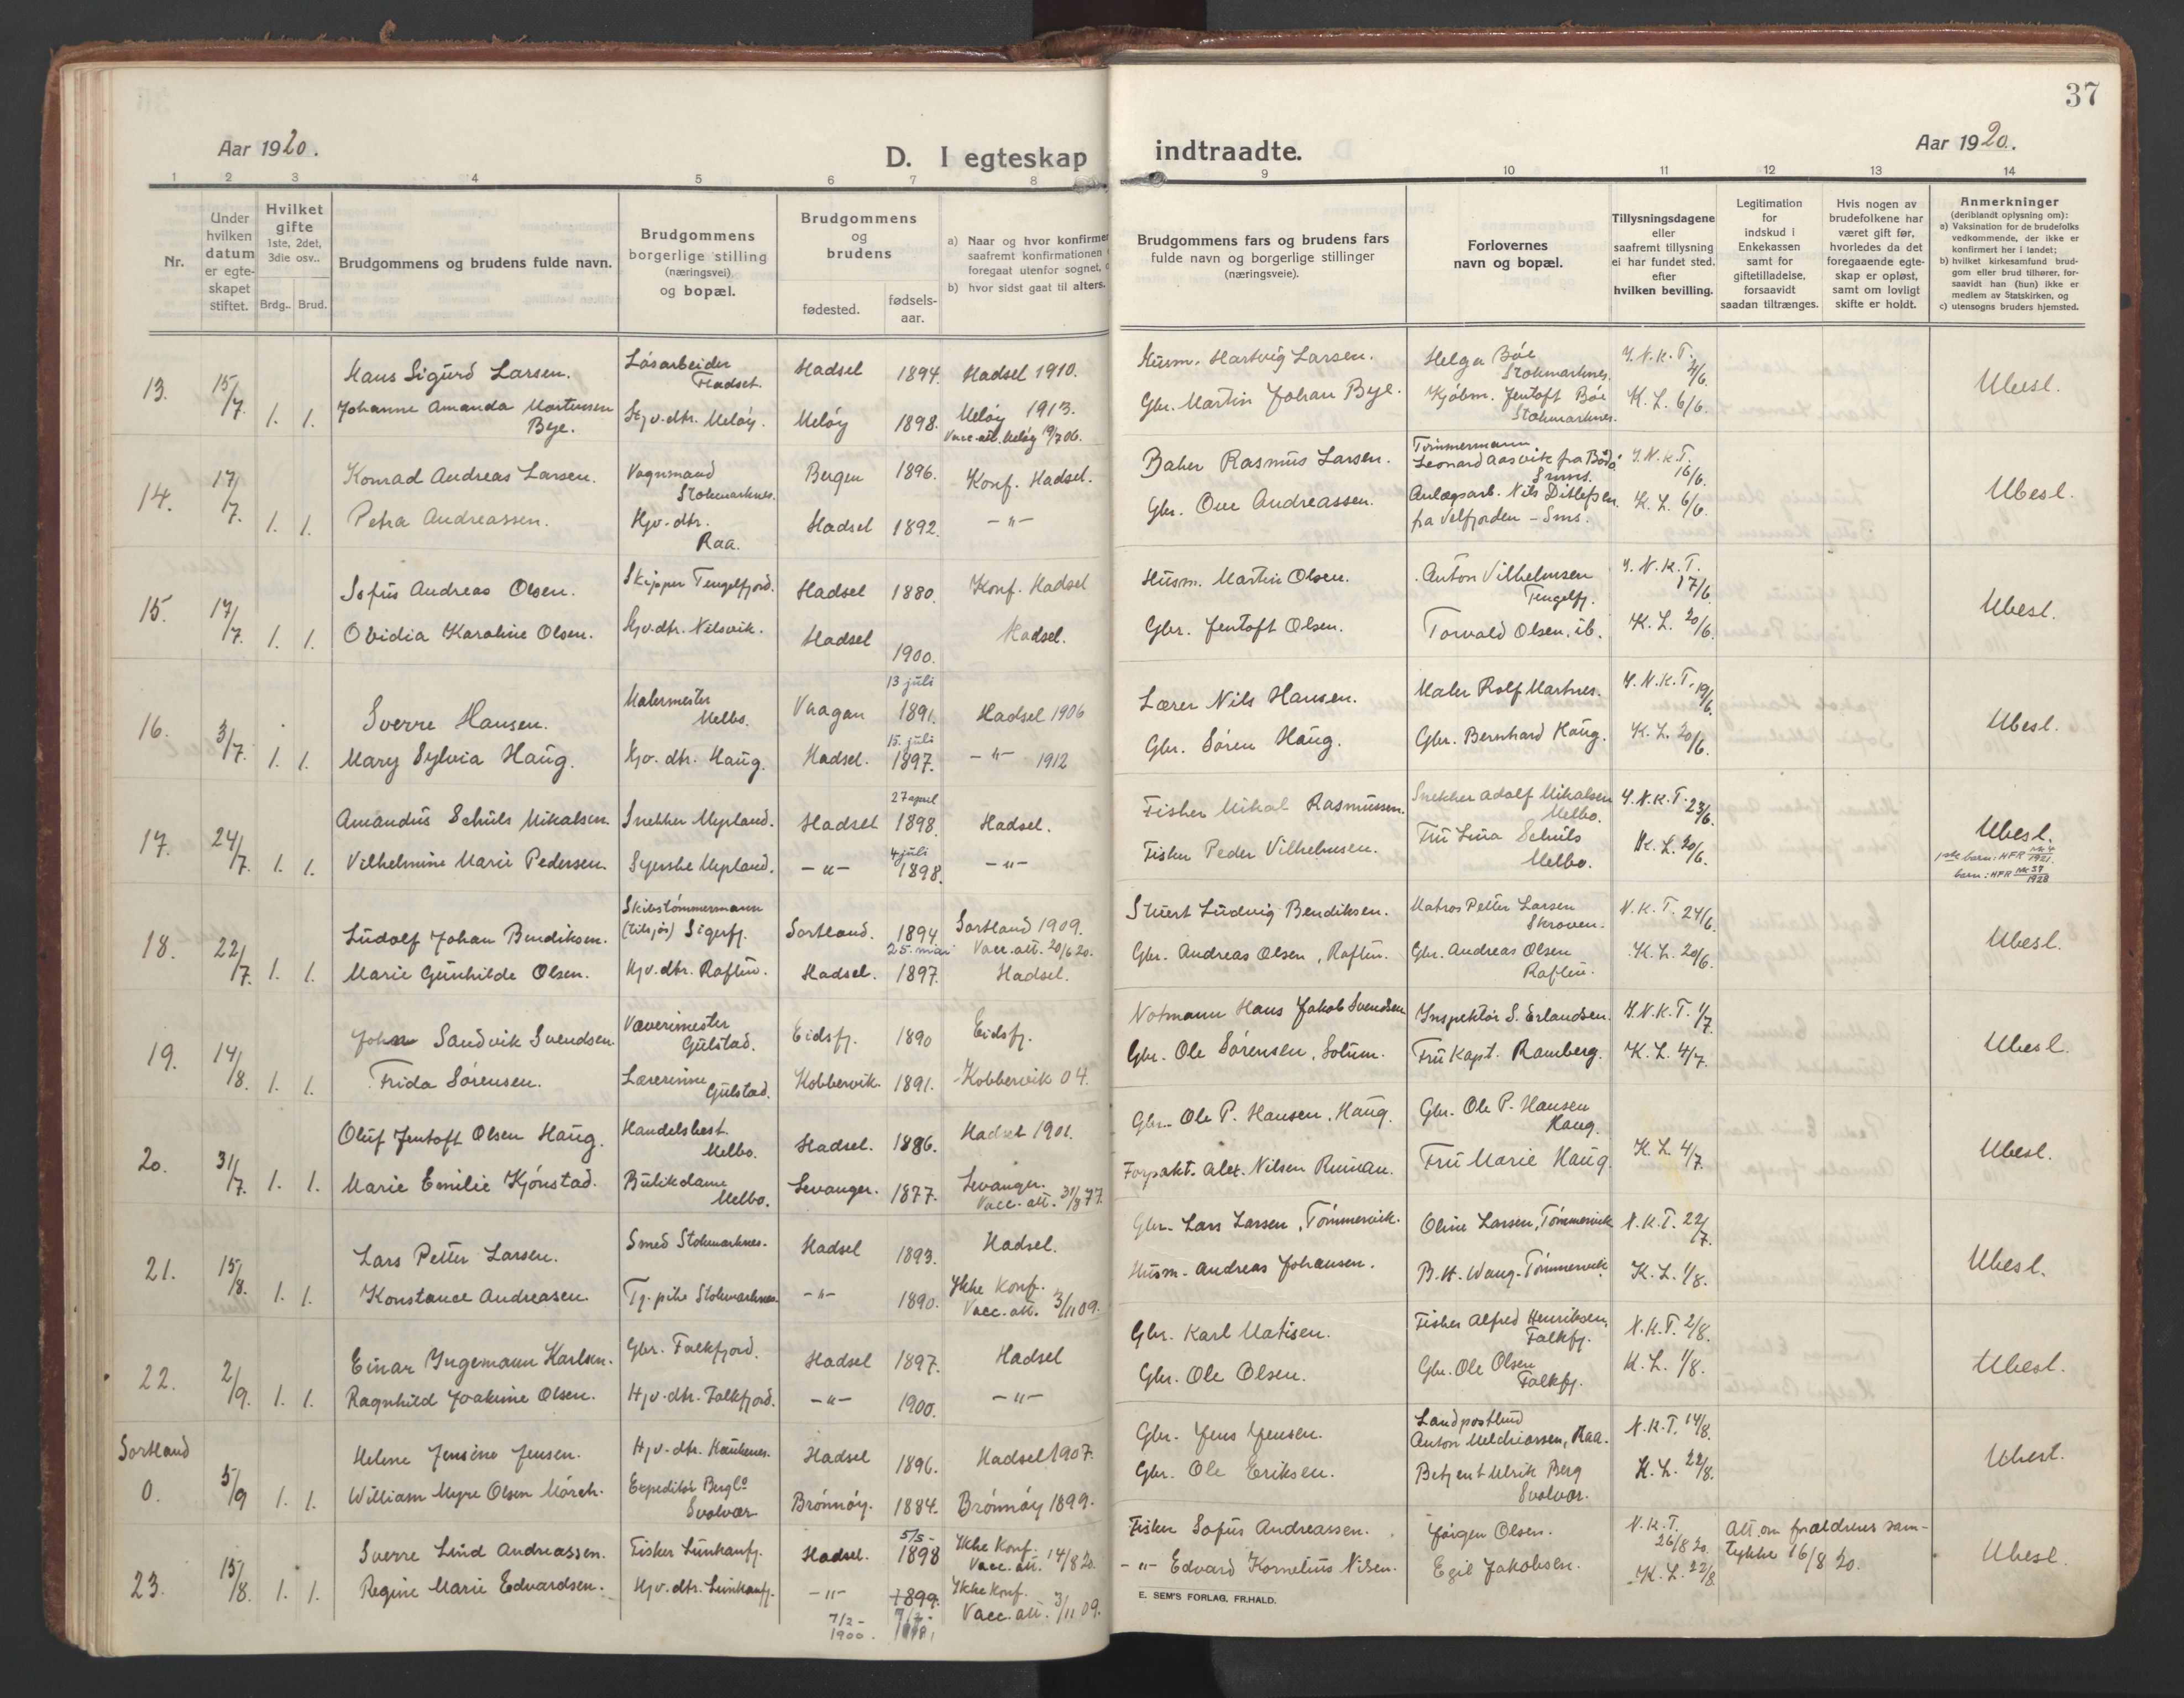 37
Aar 1920.
D. I egteskap indtraadte.
Aar 1920.
1 2 3 4 5 6 7 8 9 10 11 12 13 14
Nr.
Under
hvilken
datum
er egte-
skapet
stiftet.
Hvilket
gifte
1ste, 2det,
3die osv..
Brdg.. Brud.
Brudgommens og brudens fulde navn.
Brudgommens
borgerlige stilling
(næringsvei)
og bopæl.
Brudgommens
og
brudens
fødested.
fødsels-
aar.
a) Naar og hvor konfirmer
saafremt konfirmationen
foregaat utenfor sognet,
b) hvor sidst gaat til alters.
Brudgommens fars og brudens fars
fulde navn og borgerlige stillinger
(næringsveie).
Forlovernes
navn og bopæl.
Tillysningsdagene
eller
saafremt tillysning
ei har fundet sted.
efter
hvilken bevilling.
Legitimation
for
indskud i
Enkekassen
samt for
giftetilladelse,
forsaavidt
saadan tiltrænges.
Hvis nogen av
brudefolkene har
været gift før,
hvorledes da det
foregaaende egte-
skap er opløst,
samt om lovligt
skifte er holdt.
Anmerkninger
(deriblandt oplysning om):
a) Vaksination for de brudefolks
vedkommende, der ikke er
konfirmert her i landet;
b) hvilket kirkesamfund brud-
gom eller brud tilhører, for-
saavidt han (hun) ikke er
medlem av Statskirken, og
c) utensogns bruders hjemsted.
13. 15/7 1. 1.
Hans Sigurd Larsen. Løsarbeider Hadsel. Hadsel 1894. Hadsel 1910.
Husm. Hartvig Larsen. Helga Bøe Stokmarknes. I.N.K.T. 4/6.
Johanne Amanda Mortensen Bye. Hjv.dtr. Meløy. Meløy 1898. Meløy 1913.
Vacc.att. Meløy 19/7 06.
Gbr. Martin Johan Bye. Kjøbm. Jentoft Bøe Stokmarknes. K.L. 6/6. Ubesl.
14. 17/7. 1. 1.
Konrad Andreas Larsen. Vognmand Stokmarknes. Bergen 1896. Konf. Hadsel.
Baker Rasmus Larsen. Tømmermann Leonard Aasvik fra Bodø Smns. I.N.K.T. 16/6.
Petra Andreassen. Hjv.dtr. Raa. Hadsel 1892. -"-
Gbr. Ove Andreassen. Anlægsarb. Nils Ditlefsen fra Velfjorden - Sms. K.L. 6/6. Ubesl.
15. 17/7. 1. 1.
Sofus Andreas Olsen. Skipper Tengelfjord. Hadsel 1880. Konf. Hadsel
Husm. Martin Olsen. Anton Vilhelmsen Tengelfj. I.N.K.T. 17/6.
Ovidia Karoline Olsen. Hjv.dtr. Nilsvik. Hadsel 1900. Hadsel.
Gbr. Jentoft Olsen. Torvald Olsen, ib. K.L. 20/6. Ubesl.
16. 3/7. 1. 1.
Sverre Hansen. Malermester Melbo. Vaagan 13 juli 1891. Hadsel 1906
Lærer Nils Hansen. Maler Rolf Martnes. I.N.K.T. 19/6.
Mary Sylvia Haug. Hjv.dtr. Haug. Hadsel. 15. juli 1897. -"- 1912
Gbr. Søren Haug. Gbr. Bernhard Haug. K.L. 20/6. Ubesl.
17. 24/7. 1. 1.
Amandus Schuls Mikalsen. Snekker Myrland. Hadsel 27 april 1898. Hadsel.
Fisker Mikal Rasmussen. Snekker Adolf Mikalsen Melbo. I.N.K.T. 23/6.
Vilhelmine Marie Pedersen. Syerske Myrland. -"- 4 juli 1898. -"-
Fisker Peder Vilhelmsen. Fru Lina Schuls Melbo. K.L. 20/6. Ubesl.
1ste barn: HFR Nr 4 1921.
barn: HFR Nr 37 1928
18. 22/7. 1. 1.
Ludolf Johan Bendiksen. Skibstømmermann (tilsjøs) Sigerfj. Sortland. 1894. Sortland 1909.
Vacc.att. 20/6 20.
Stuert Ludvig Bendiksen. Matros Petter Larsen Skroven. N.K.T. 24/6.
Marie Gunhilde Olsen. Hjv.dtr. Raften. Hadsel. 25. mai 1897. Hadsel.
Gbr. Andreas Olsen, Raften. Gbr. Andreas Olsen Raften. K.L. 20/6. Ubesl.
19. 14/8. 1. 1.
John Sandvik Svendsen. Væverimester Gulstad. Eidsfj. 1890 Eidsfj.
Notmann Hans Jakob Svendsen Inspektør S. Erlandsen. I.N.K.T. 1/7.
Frida Sørensen. Lærerinne Gulstad. Kobbervik 1891. Kobbervik 04.
Gbr. Ole Sørensen, Solum. Fru Kapt. Ramberg. K.L. 4/7. Ubesl.
20. 31/7. 1. 1.
Oluf Jentoft Olsen Haug. Handelsbest. Melbo. Hadsel. 1886. Hadsel 1901.
Gbr. Ole P. Hansen, Haug. Gbr. Ole P. Hansen Haug.
Marie Emilie Kjønstad. Butikdame Melbo. Levanger. 1877. Levanger.
Vacc. att. 31/8 77.
Forpakt. Alex. Nilsen Rinnan. Fru Marie Haug. K.L. 4/7. Ubesl.
21. 15/8. 1. 1.
Lars Petter Larsen. Smed Stokmarknes. Hadsel 1893. Hadsel.
Gbr. Lars Larsen, Tømmervik. Oline Larsen, Tømmervik N.K.T. 22/7.
Konstance Andreasen. Tj.pike Stokmarknes. -"- 1890. Ikke Konf.
Vacc.att. 3/11 09.
Husm. Andreas Johansen. B.H. Waug-Tømmervik. K.L. 1/8. Ubesl.
22. 2/9. 1. 1.
Einar Ingemann Karlsen. Gbr. Falkfjord. Hadsel 1897. Hadsel
Gbr. Karl Matisen. Fisker Alfred Henriksen, Falkfj. N.K.T. 2/8.
Ragnhild Joakime Olsen. Hjv.dtr. Falkfjord. -"- 1900. -"-
Gbr. Ole Olsen. Gbr. Ole Olsen Falkfj. K.L. 1/8. Ubesl.
Sortland
0. 5/9 1. 1.
Helene Jensine Jensen. Hjv.dtr. Haukenes. Hadsel 1896. Hadsel 1907.
Gbr. Jens Jensen. Landpostbud Anton Melchiorsen, Raa. N.K.T. 14/8.
William Myre Olsen Mörch. Expeditør Berg Svolvær Brønnøy. 1884. Brønnøy 1899.
Gbr. Ole Eriksen. Betjent Ulrik Berg Svolvær. K.L. 22/8. Ubesl.
23. 15/8. 1. 1.
Sverre Lind Andreassen. Fisker Lunkanfj. Hadsel. 5/5- 1898 Ikke Konf.
Vacc. att. 14/8 20.
Fisker Sofus Andreassen. Jørgen Olsen. N.K.T. 26/8 20. Att. om forældrenes sam-
tykke 16/8 20.
Regine Marie Edvardsen. Hjv.dtr. Lunkanfj. -"- 1899. Ikke Konf.
7/2- 1900. Vacc. att. 3/11 09.
-"- Edvard Kornelius Nilsen. Egil Jakobsen. K.L. 22/8. Ubesl.
E. SEM'S FORLAG, FR.HALD.